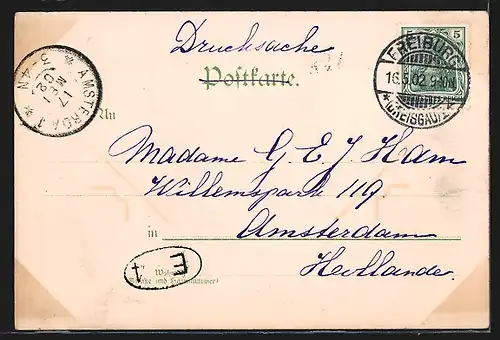 Drucksache
Postkarte.
5
FREIBURG
16.5.02. 9-10N
* (BREISGAU) *
AMSTERDAM
17
MEI
02
3-4N
An
Madame G. E. J. Ham
Willemspark 119.
in Amsterdam
Hollande.
E 4
Wohnung
(Straße und Hausnummer)